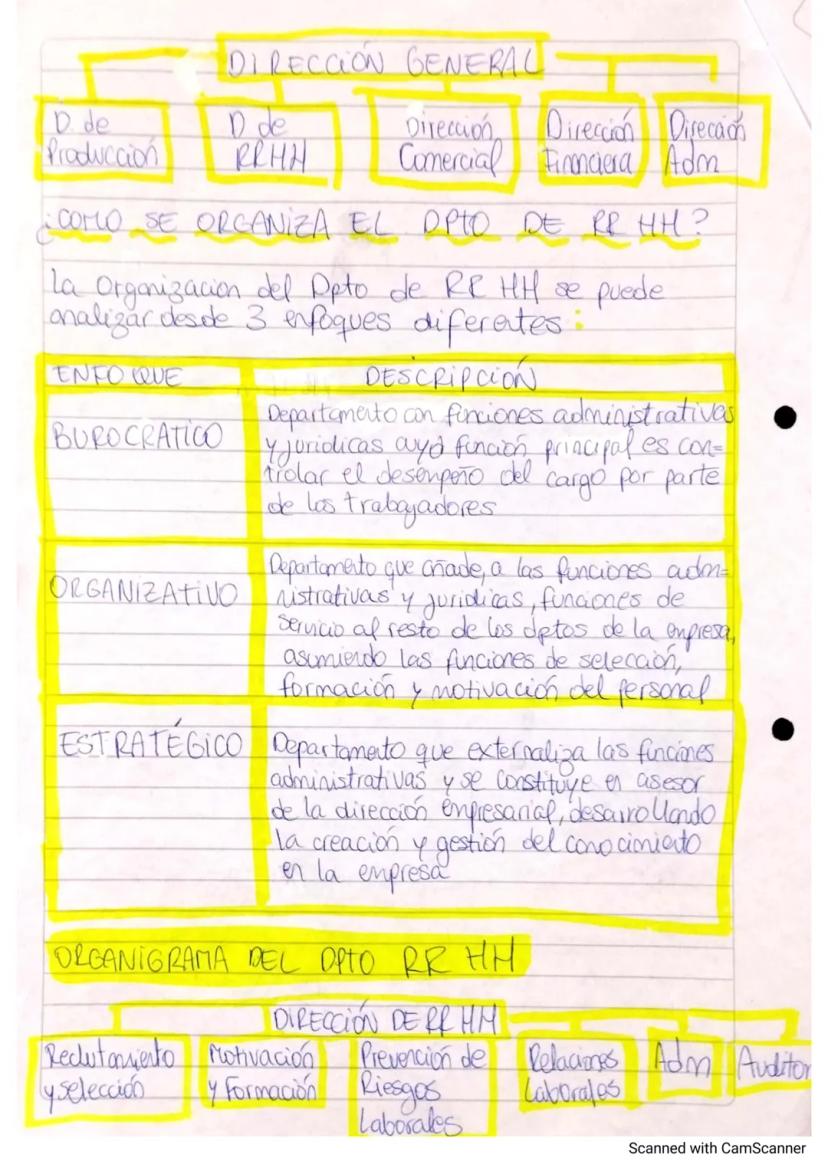 DIRECCIÓN GENERAL
D. de Producción
D de RRHH
Dirección Comercial
Dirección Financiera
Dirección Adm
¿COMO SE ORGANIZA EL DPTO DE RR HH?
La Organizacion del Dpto de RR HH se puede
analizar desde 3 enfoques diferentes:
ENFOQUE DESCRIPCIÓN
BUROCRATICO
Departamento con funciones administrativas
y juridicas cuya función principal es con=
trolar el desempeño del cargo por parte
de los trabajadores
ORGANIZATIVO
Departamento que añade, a las funciones admi=
nistrativas y juridicas, funciones de
servicio al resto de los dptos de la empresa,
asumiendo las funciones de selección,
formación y motivación del personal
ESTRATÉGICO
Departamento que externaliza las funciones
administrativas y se constituye en asesor
de la dirección empresarial, desarrollando
la creación y gestión del conocimiento
en la empresa
ORGANIGRAMA DEL DPTO RR HH
DIRECCIÓN DE RR HH
Reclutamiento
y selección
Motivación
y Formación
Prevención de
Riesgos
Laborales
Relaciones
Laborales
Adm
Auditor
Scanned with CamScanner